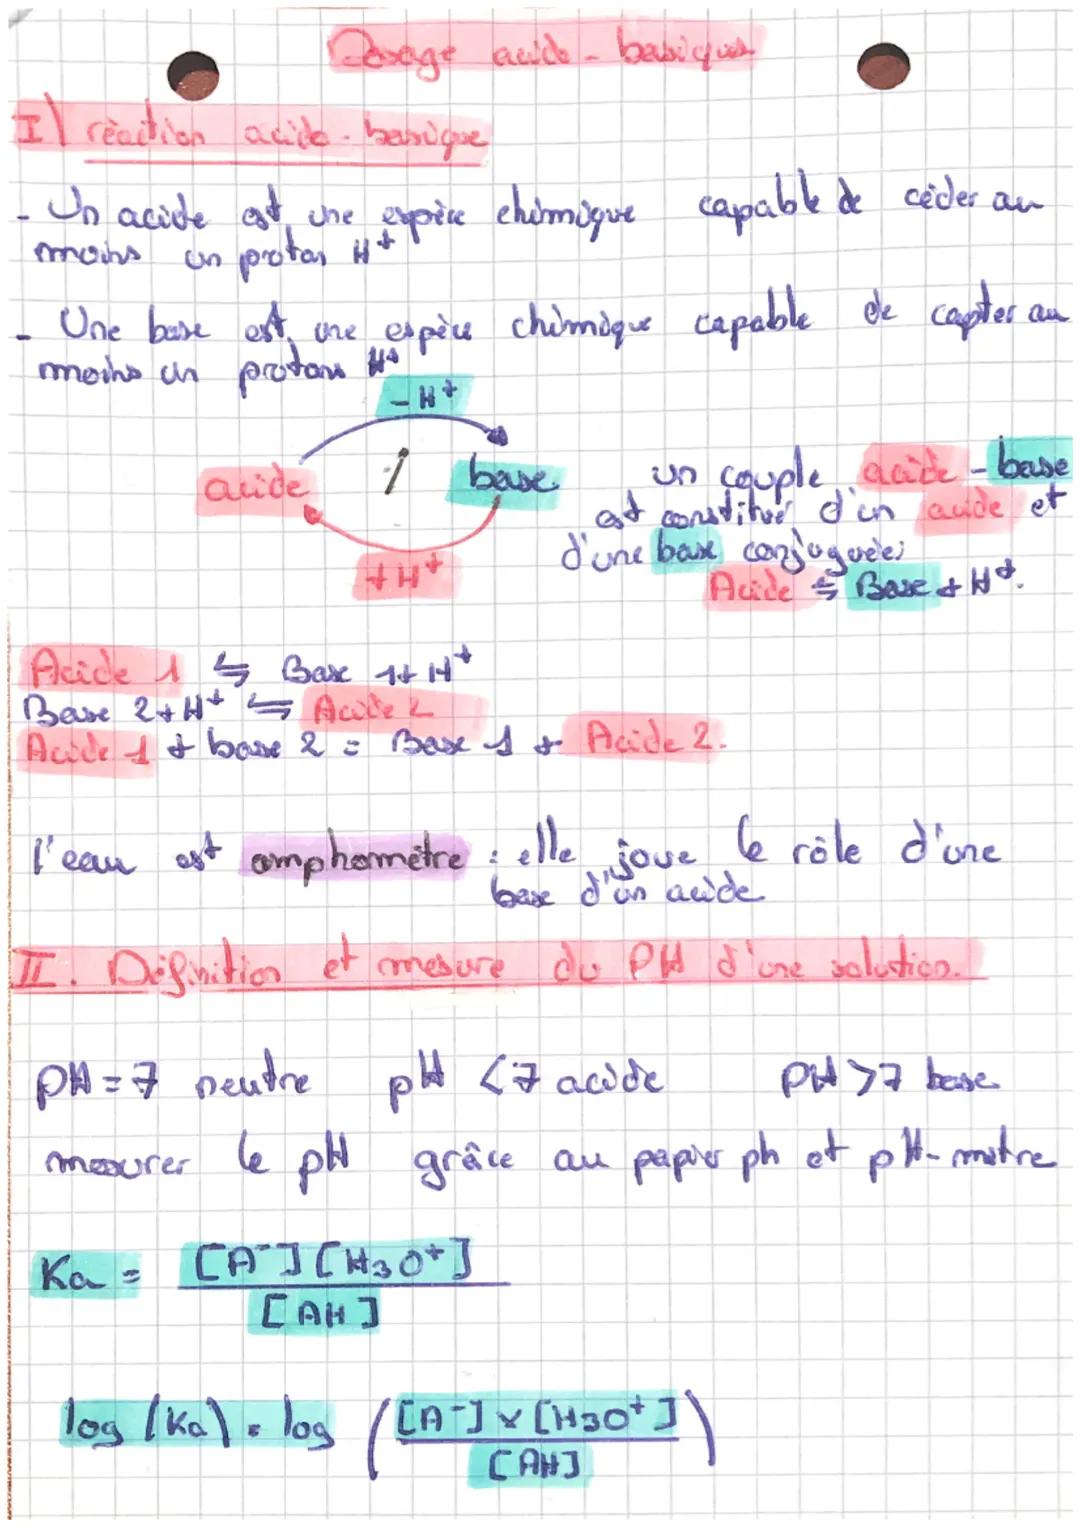 Dosage acido-basiques
I\ réaction acido-basique
- Un acide est une espèce chimique capable de céder au
moins un proton H+
- Une base est une espèce chimique capable de capter au
moins un protons H+
- H+
acide / base
+ H+
un couple acide - base
est constitué d'un acide et
d'une base conjuguée:
Acide ⇆ Base + H+.
Acide 1 ⇆ Base 1 + H+
Base 2 + H+ ⇆ Acide 2
Acide 1 + base 2 = Base 1 + Acide 2.
l'eau est amphomètre : elle joue le rôle d'une
base d'un acide
II. Définition et mesure du PH d'une solution.
PH = 7 neutre pH < 7 acide PH > 7 base
mesurer le pH grâce au papier ph et pH-mètre
Ka = [A-] [H3O+]
[AH]
log (Ka) = log ([A-] x [H3O+])
[AH]